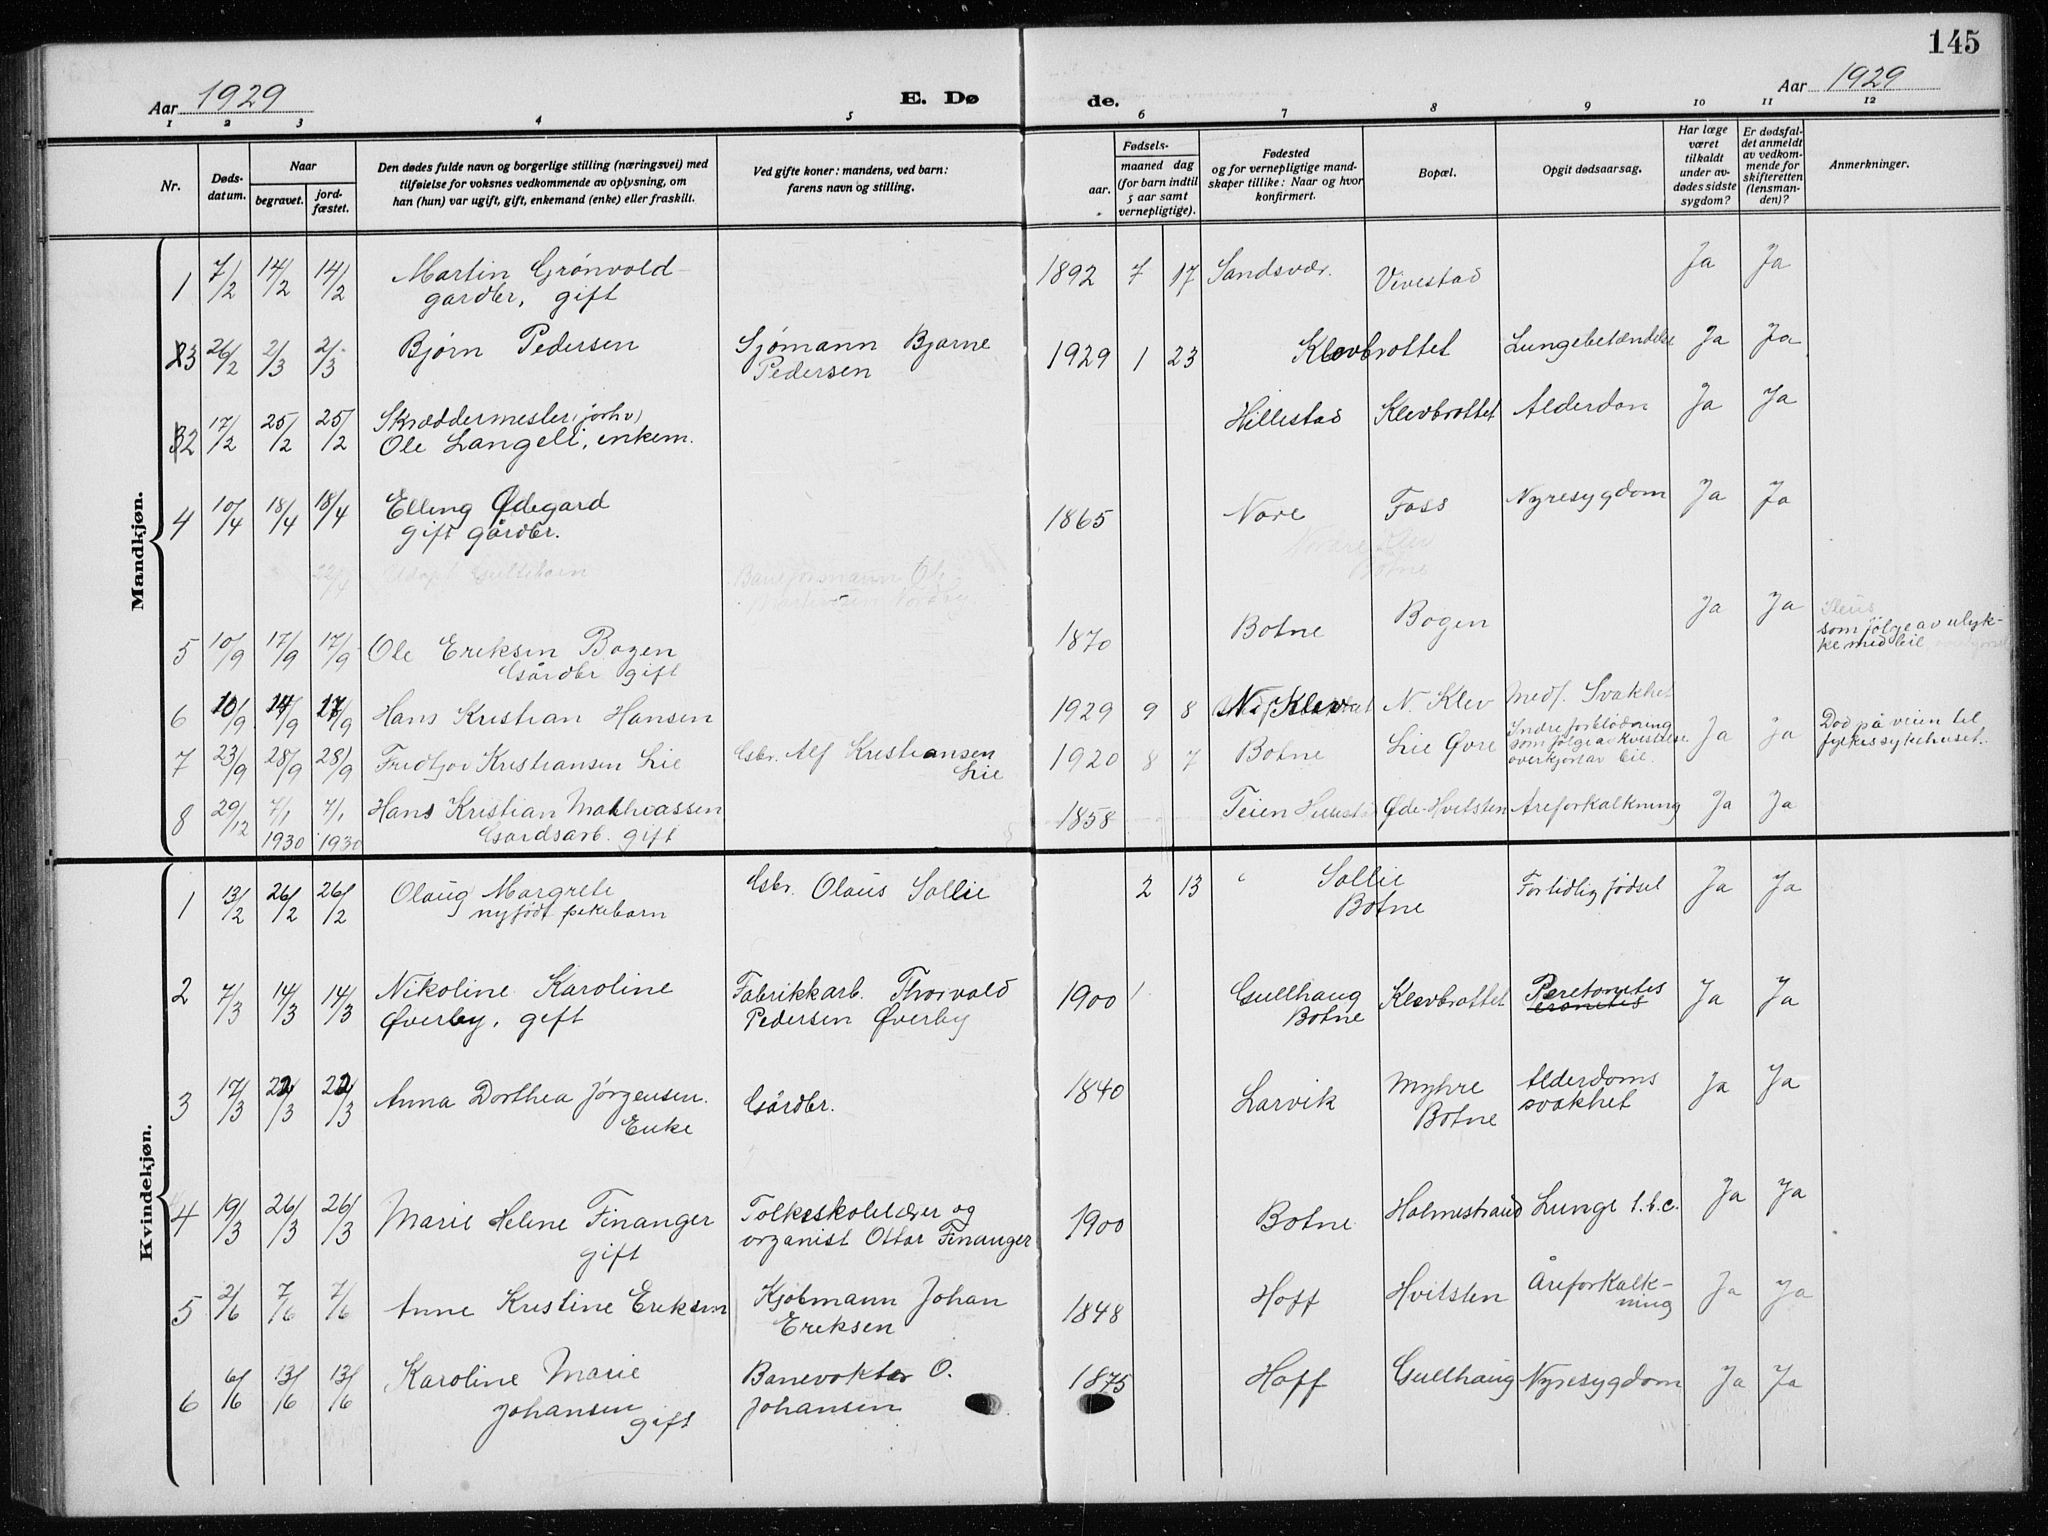 145
Aar 1929 E. Dø de. Aar 1929
1 2 3 4 5 6 7 8 9 10 11 12
Nr. Døds-datum. Naar begravet. jord-fæstet. Den dødes fulde navn og borgerlige stilling (næringsvei) med tilføielse for voksnes vedkommende av oplysning, om han (hun) var ugift, gift, enkemand (enke) eller fraskilt. Ved gifte koner: mandens, ved barn: farens navn og stilling. Fødsels- aar. maaned dag (for barn indtil 5 aar samt vernepligtige). Fødested og for vernepligtige mand-skaper tillike: Naar og hvor konfirmert. Bopæl. Opgit dødsaarsag. Har læge været tilkaldt under av-dødes sidste sygdom? Er dødsfal-det anmeldt av vedkom-mende for skifteretten (lensman-den)? Anmerkninger.
Mandkjøn.
1 7/2 14/2 14/2 Martin Grönvold 1892 7 17 Sandsvær. Vivestad Ja Ja
gårdbr, gift
3 26/2 2/3 2/3 Bjørn Pedersen Sjømann Bjarne 1929 1 23 Klevbrottet Lungebetændelse Ja Ja
Pedersen
2 17/2 25/2 25/2 Skræddermester (forhv) Hillestad Klevbrottet Alderdom Ja Ja
Ole Langeli, enkem.
4 10/4 18/4 18/4 Elling Ødegard 1865 Nore Foss Nyresygdom Ja Ja
gift gårdbr.
5 10/9 17/9 17/9 Ole Eriksen Bogen 1870 Botne Bogen Ja Ja Ileus
Gårdbr. gift som følge av ulyk-
ke med bil
6 10/9 17/9 17/9 Hans Kristian Hansen 1929 9 8 N. Klev N. Klev Medf. Svakhet
7 23/9 28/9 28/9 Fridtjov Kristiansen Lie Gbr. Alf Kristiansen 1920 8 7 Botne Lie Øvre Indre forblødning Ja Ja Død på veien til
Lie som følge av kvestelse fylkessykehuset.
overkjørt av bil.
8 29/12 7/1 1930 7/1 1930 Hans Kristian Mathiassen 1858 Teien Hillest Øde-Hvitsten Åreforkalkning Ja Ja
Gårdsarb. gift
Kvindekjøn.
1 13/2 26/2 26/2 Olaug Margrete Gbr. Olaus Sollie 2 13 Sollie For tidlig fødsel Ja Ja
nyfödt pikebarn Botne
2 7/3 14/3 14/3 Nikoline Karoline Fabrikkarb. Thorvald 1900 Gullhaug Klevbrottet Peretonetes Ja Ja
Øverby, gift Pedersen Øverby Botne
3 17/3 22/3 22/3 Anna Dorthea Jørgensen. Gårdbr. 1840 Larvik Myhre Alderdoms Ja Ja
Enke Botne svakhet
4 19/3 26/3 26/3 Marie Helene Finanger Folkeskolelærer og 1900 Botne Holmestrand Lunge t.b.c. Ja Ja
gift organist Ottar Finanger
5 2/6 7/6 7/6 Anne Kristine Eriksen Kjøbmann Johan 1848 Hoff Hvitsten Åreforkalk- Ja Ja
Eriksen ning
6 6/6 13/6 13/6 Karoline Marie Banevokter O. 1875 Hoff Gullhaug Nyresygdom Ja Ja
Johansen Johansen
gift